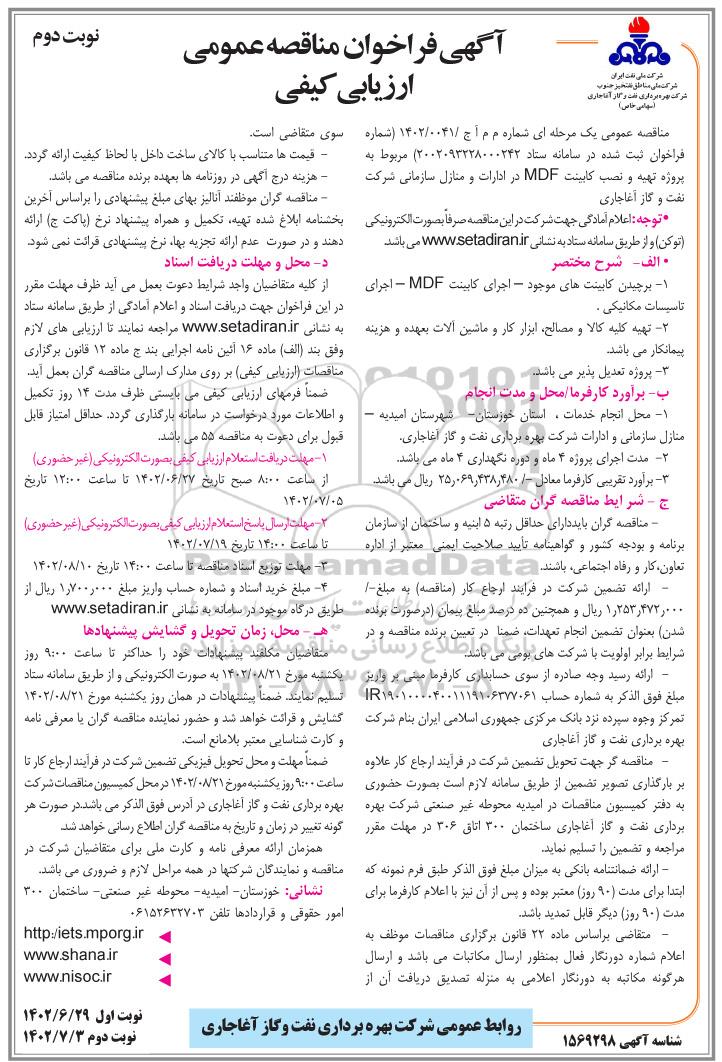 نوبت دوم
آگهی فراخوان مناقصه عمومی
ارزیابی کیفی
شرکت ملی نفت ایران
شرکت ملی مناطق نفتخیز جنوب
شرکت بهره برداری نفت و گاز آغاجاری
(سهامی خاص)
مناقصه عمومی یک مرحله ای شماره م م آ ج /۱۴۰۲/۰۰۴۱ (شماره
فراخوان ثبت شده در سامانه ستاد ۲۰۰۲۰۹۳۲۲۸۰۰۰۲۴۲) مربوط به
پروژه تهیه و نصب کابینت MDF در ادارات و منازل سازمانی شرکت
نفت و گاز آغاجاری
•توجه: اعلام آمادگی جهت شرکت در این مناقصه صرفاً بصورت الکترونیکی
(توکن) و از طریق سامانه ستاد به نشانی www.setadiran.ir می باشد.
• الف- شرح مختصر
۱- برچیدن کابینت های موجود – اجرای کابینت MDF – اجرای
تاسیسات مکانیکی .
۲- تهیه کلیه کالا و مصالح، ابزار کار و ماشین آلات بعهده و هزینه
پیمانکار می باشد.
۳- پروژه تعدیل پذیر می باشد.
ب- برآورد کارفرما/محل و مدت انجام
۱- محل انجام خدمات ، استان خوزستان- شهرستان امیدیه –
منازل سازمانی و ادارات شرکت بهره برداری نفت و گاز آغاجاری.
۲- مدت اجرای پروژه ۴ ماه و دوره نگهداری ۴ ماه می باشد.
۳- برآورد تقریبی کارفرما معادل -/۲۵٫۰۶۹٫۴۳۸٫۴۸۰ ریال می باشد.
ج - شرایط مناقصه گران متقاضی
- مناقصه گران بایددارای حداقل رتبه ۵ ابنیه و ساختمان از سازمان
برنامه و بودجه کشور و گواهینامه تأیید صلاحیت ایمنی معتبر از اداره
تعاون،کار و رفاه اجتماعی، باشند.
- ارائه تضمین شرکت در فرآیند ارجاع کار (مناقصه) به مبلغ-/
۱٫۲۵۳٫۴۷۲٫۰۰۰ ریال و همچنین ده درصد مبلغ پیمان (درصورت برنده
شدن) بعنوان تضمین انجام تعهدات، ضمنا در تعیین برنده مناقصه و در
شرایط برابر اولویت با شرکت های بومی می باشد.
- ارائه رسید وجه صادره از سوی حسابداری کارفرما مبنی بر واریز
مبلغ فوق الذکر به شماره حساب IR۱۹۰۱۰۰۰۰۴۰۰۱۱۱۹۱۰۶۳۷۷۰۶۱
تمرکز وجوه سپرده نزد بانک مرکزی جمهوری اسلامی ایران بنام شرکت
بهره برداری نفت و گاز آغاجاری
- مناقصه گر جهت تحویل تضمین شرکت در فرآیند ارجاع کار علاوه
بر بارگذاری تصویر تضمین از طریق سامانه لازم است بصورت حضوری
به دفتر کمیسیون مناقصات در امیدیه محوطه غیر صنعتی شرکت بهره
برداری نفت و گاز آغاجاری ساختمان ۳۰۰ اتاق ۳۰۶ در مهلت مقرر
مراجعه و تضمین را تسلیم نماید.
- ارائه ضمانتنامه بانکی به میزان مبلغ فوق الذکر طبق فرم نمونه که
ابتدا برای مدت (۹۰ روز) معتبر بوده و پس از آن نیز با اعلام کارفرما برای
مدت (۹۰ روز) دیگر قابل تمدید باشد.
- متقاضی براساس ماده ۲۲ قانون برگزاری مناقصات موظف به
اعلام شماره دورنگار فعال بمنظور ارسال مکاتبات می باشد و ارسال
هرگونه مکاتبه به دورنگار اعلامی به منزله تصدیق دریافت آن از
سوی متقاضی است.
- قیمت ها متناسب با کالای ساخت داخل با لحاظ کیفیت ارائه گردد.
- هزینه درج آگهی در روزنامه ها بعهده برنده مناقصه می باشد.
- مناقصه گران موظفند آنالیز بهای مبلغ پیشنهادی را براساس آخرین
بخشنامه ابلاغ شده تهیه، تکمیل و همراه پیشنهاد نرخ (پاکت ج) ارائه
دهند و در صورت عدم ارائه تجزیه بها، نرخ پیشنهادی قرائت نمی شود.
د- محل و مهلت دریافت اسناد
از کلیه متقاضیان واجد شرایط دعوت بعمل می آید ظرف مهلت مقرر
در این فراخوان جهت دریافت اسناد و اعلام آمادگی از طریق سامانه ستاد
به نشانی www.setadiran.ir مراجعه نمایند تا ارزیابی های لازم
وفق بند (الف) ماده ۱۶ آئین نامه اجرایی بند ج ماده ۱۲ قانون برگزاری
مناقصات (ارزیابی کیفی) بر روی مدارک ارسالی مناقصه گران بعمل آید.
ضمناً فرمهای ارزیابی کیفی می بایستی ظرف مدت ۱۴ روز تکمیل
و اطلاعات مورد درخواست در سامانه بارگذاری گردد. حداقل امتیاز قابل
قبول برای دعوت به مناقصه ۵۵ می باشد.
۱-مهلت دریافت استعلام ارزیابی کیفی بصورت الکترونیکی (غیر حضوری)
از ساعت ۸:۰۰ صبح تاریخ ۱۴۰۲/۰۶/۲۷ تا ساعت ۱۲:۰۰ تاریخ
۱۴۰۲/۰۷/۰۵
۲-مهلت ارسال پاسخ استعلام ارزیابی کیفی بصورت الکترونیکی (غیر حضوری)
تا ساعت ۱۴:۰۰ تاریخ ۱۴۰۲/۰۷/۱۹
۳- مهلت توزیع اسناد مناقصه تا ساعت ۱۴:۰۰ تاریخ ۱۴۰۲/۰۸/۱۰
۴- مبلغ خرید اسناد و شماره حساب واریز مبلغ ۱٫۷۰۰٫۰۰۰ ریال از
طریق درگاه موجود در سامانه به نشانی www.setadiran.ir
هـ - محل، زمان تحویل و گشایش پیشنهادها
متقاضیان مکلفند پیشنهادات خود را حداکثر تا ساعت ۹:۰۰ روز
یکشنبه مورخ ۱۴۰۲/۰۸/۲۱ به صورت الکترونیکی و از طریق سامانه ستاد
تسلیم نمایند. ضمناً پیشنهادات در همان روز یکشنبه مورخ ۱۴۰۲/۰۸/۲۱
گشایش و قرائت خواهد شد و حضور نماینده مناقصه گران با معرفی نامه
و کارت شناسایی معتبر بلامانع است.
ضمناً مهلت و محل تحویل فیزیکی تضمین شرکت در فرآیند ارجاع کار تا
ساعت ۹:۰۰ روز یکشنبه مورخ ۱۴۰۲/۰۸/۲۱ در محل کمیسیون مناقصات شرکت
بهره برداری نفت و گاز آغاجاری در آدرس فوق الذکر می باشد.در صورت هر
گونه تغییر در زمان و تاریخ به مناقصه گران اطلاع رسانی خواهد شد.
همزمان ارائه معرفی نامه و کارت ملی برای متقاضیان شرکت در
مناقصه و نمایندگان شرکتها در همه مراحل لازم و ضروری می باشد.
نشانی: خوزستان- امیدیه- محوطه غیر صنعتی- ساختمان ۳۰۰
امور حقوقی و قراردادها تلفن ۰۶۱۵۲۶۳۲۷۰۳
http:/iets.mporg.ir
www.shana.ir
www.nisoc.ir
نوبت اول ۱۴۰۲/۶/۲۹
نوبت دوم ۱۴۰۲/۷/۳
روابط عمومی شرکت بهره برداری نفت و گاز آغاجاری
شناسه آگهی ۱۵۶۹۲۹۸